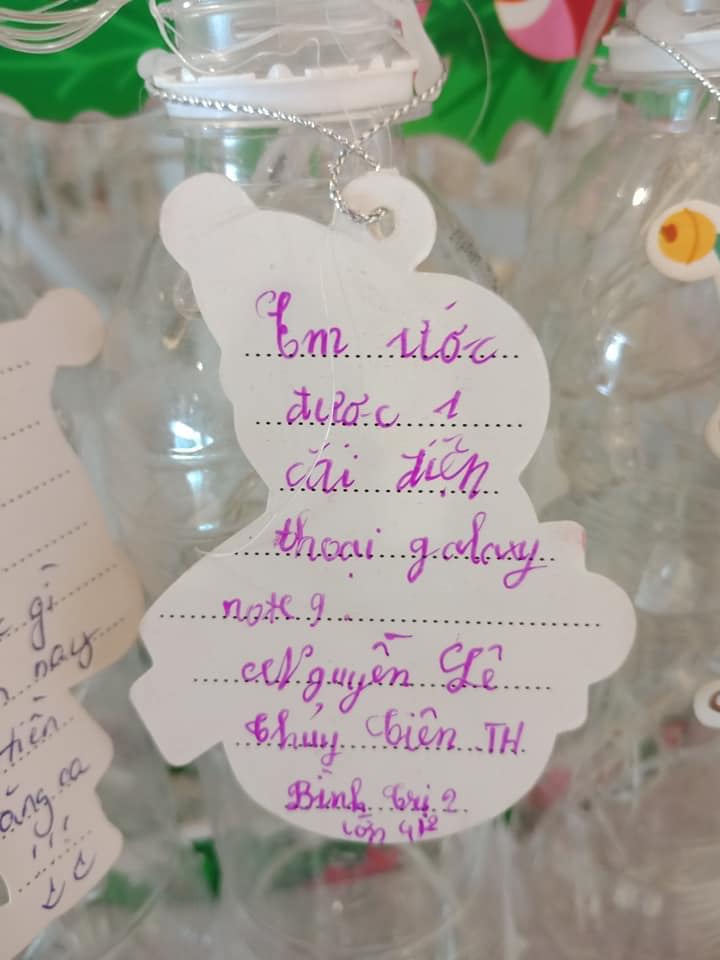 Em ước
được 1
cái điện
thoại galaxy
note 9.
Nguyễn Lê
Thủy Tiên TH
Bình Trị 2
Lớp 4/2
gì
nay
tiền